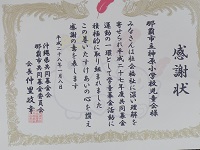 感謝状
那覇市立神原小学校児童会様
みなさんは社会福祉に深い理解を
寄せられ平成二十七年度共同募金
運動の一環として学童募金活動に
積極的に取り組まれました
この善いたすけあいの心を讃え
感謝の意を表します
平成二十八年一月八日
沖縄県共同募金会
那覇市共同募金委員会
会長 仲里